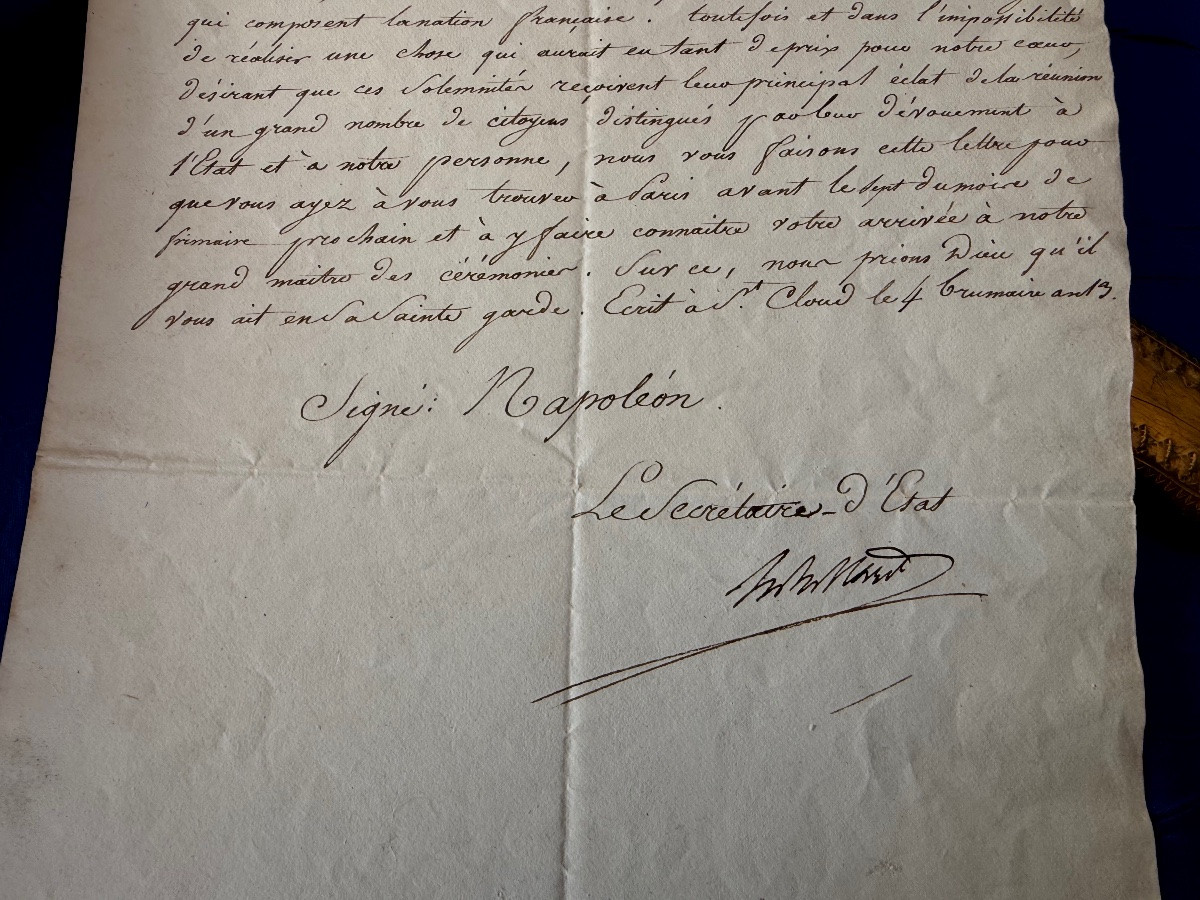 qui composent la nation française. toutefois et dans l'impossibilité
de réaliser une chose qui aurait eu tant de prix pour notre cœur,
désirant que ces Solemnités reçoivent leur principal éclat de la réunion
d'un grand nombre de citoyens distingués par leur dévouement à
l'Etat et à notre personne, nous vous faisons cette lettre pour
que vous ayez à vous trouver à Paris avant le Sept du mois de
frimaire prochain et à y faire connaitre votre arrivée à notre
grand maitre des cérémonies. Sur ce, nous prions Dieu qu'il
vous ait en Sa Sainte garde. Ecrit à St. Cloud le 4 brumaire an 13.
Signé: Napoléon.
Le Secrétaire-d'Etat